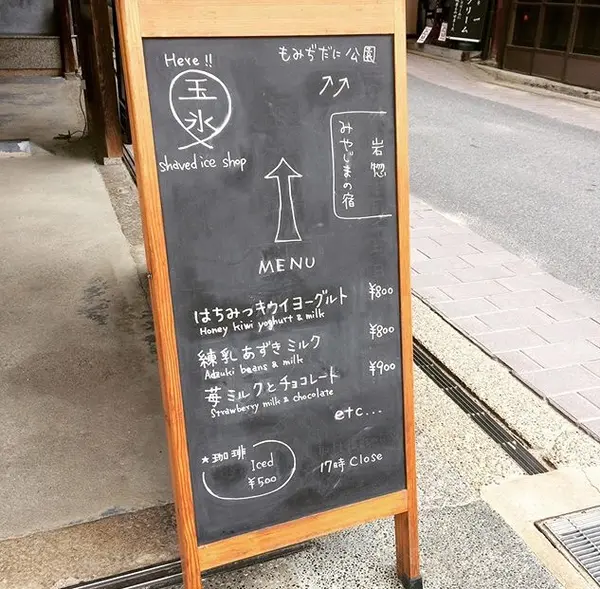 Here!!
玉氷
shaved ice shop
もみぢだに公園
岩惣
みやじまの宿
MENU
はちみつキウイヨーグルト ¥800
Honey kiwi yoghurt & milk
練乳あずきミルク ¥800
Adzuki beans & milk
苺ミルクとチョコレート ¥900
Strawberry milk & chocolate
etc...
*珈琲
Iced
¥500
17時 Close